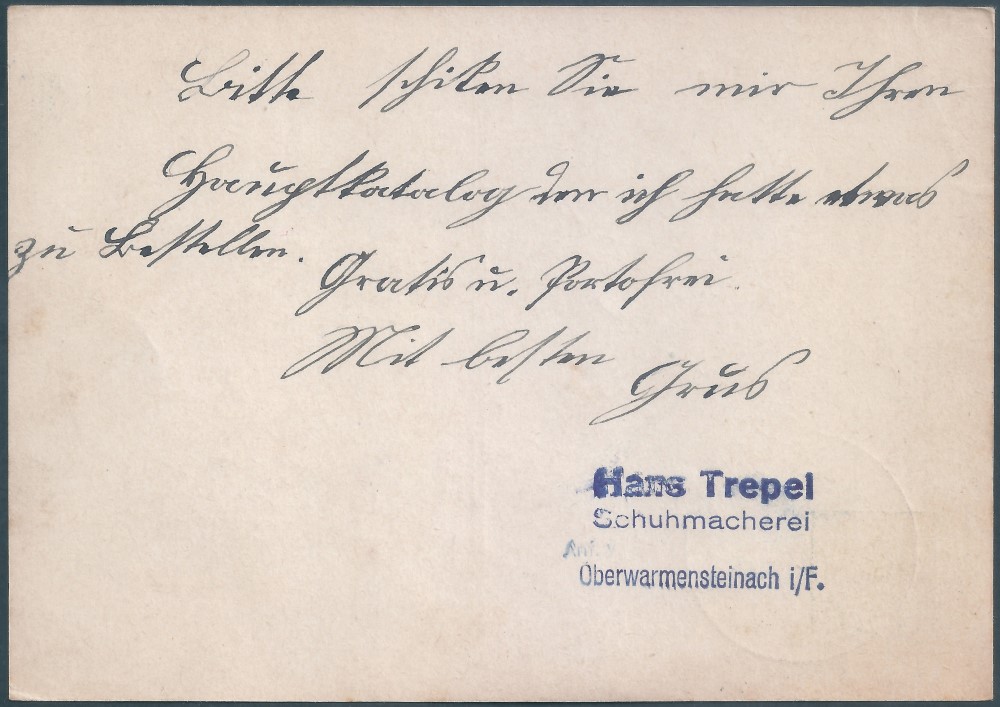 Bitte schiken Sie mir Ihren
Hauptkatalog den ich hatte etwas
zu Bestellen.
Gratis u. Portofrei.
Mit besten
Grus
Hans Trepel
Schuhmacherei
Oberwarmensteinach i/F.